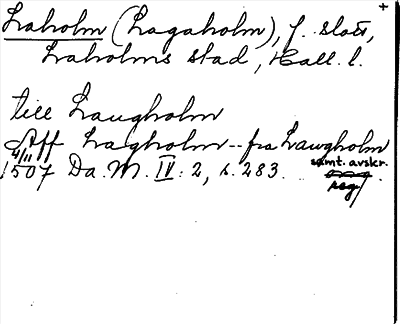 +
Laholm (Lagaholm), f. slott,
Laholms stad, Hall. l.
till Laugholm
Aff Lagholm -- fra Lawgholm
4/11 1507 Da. M. IV: 2, s. 283. samt. avskr.
reg.